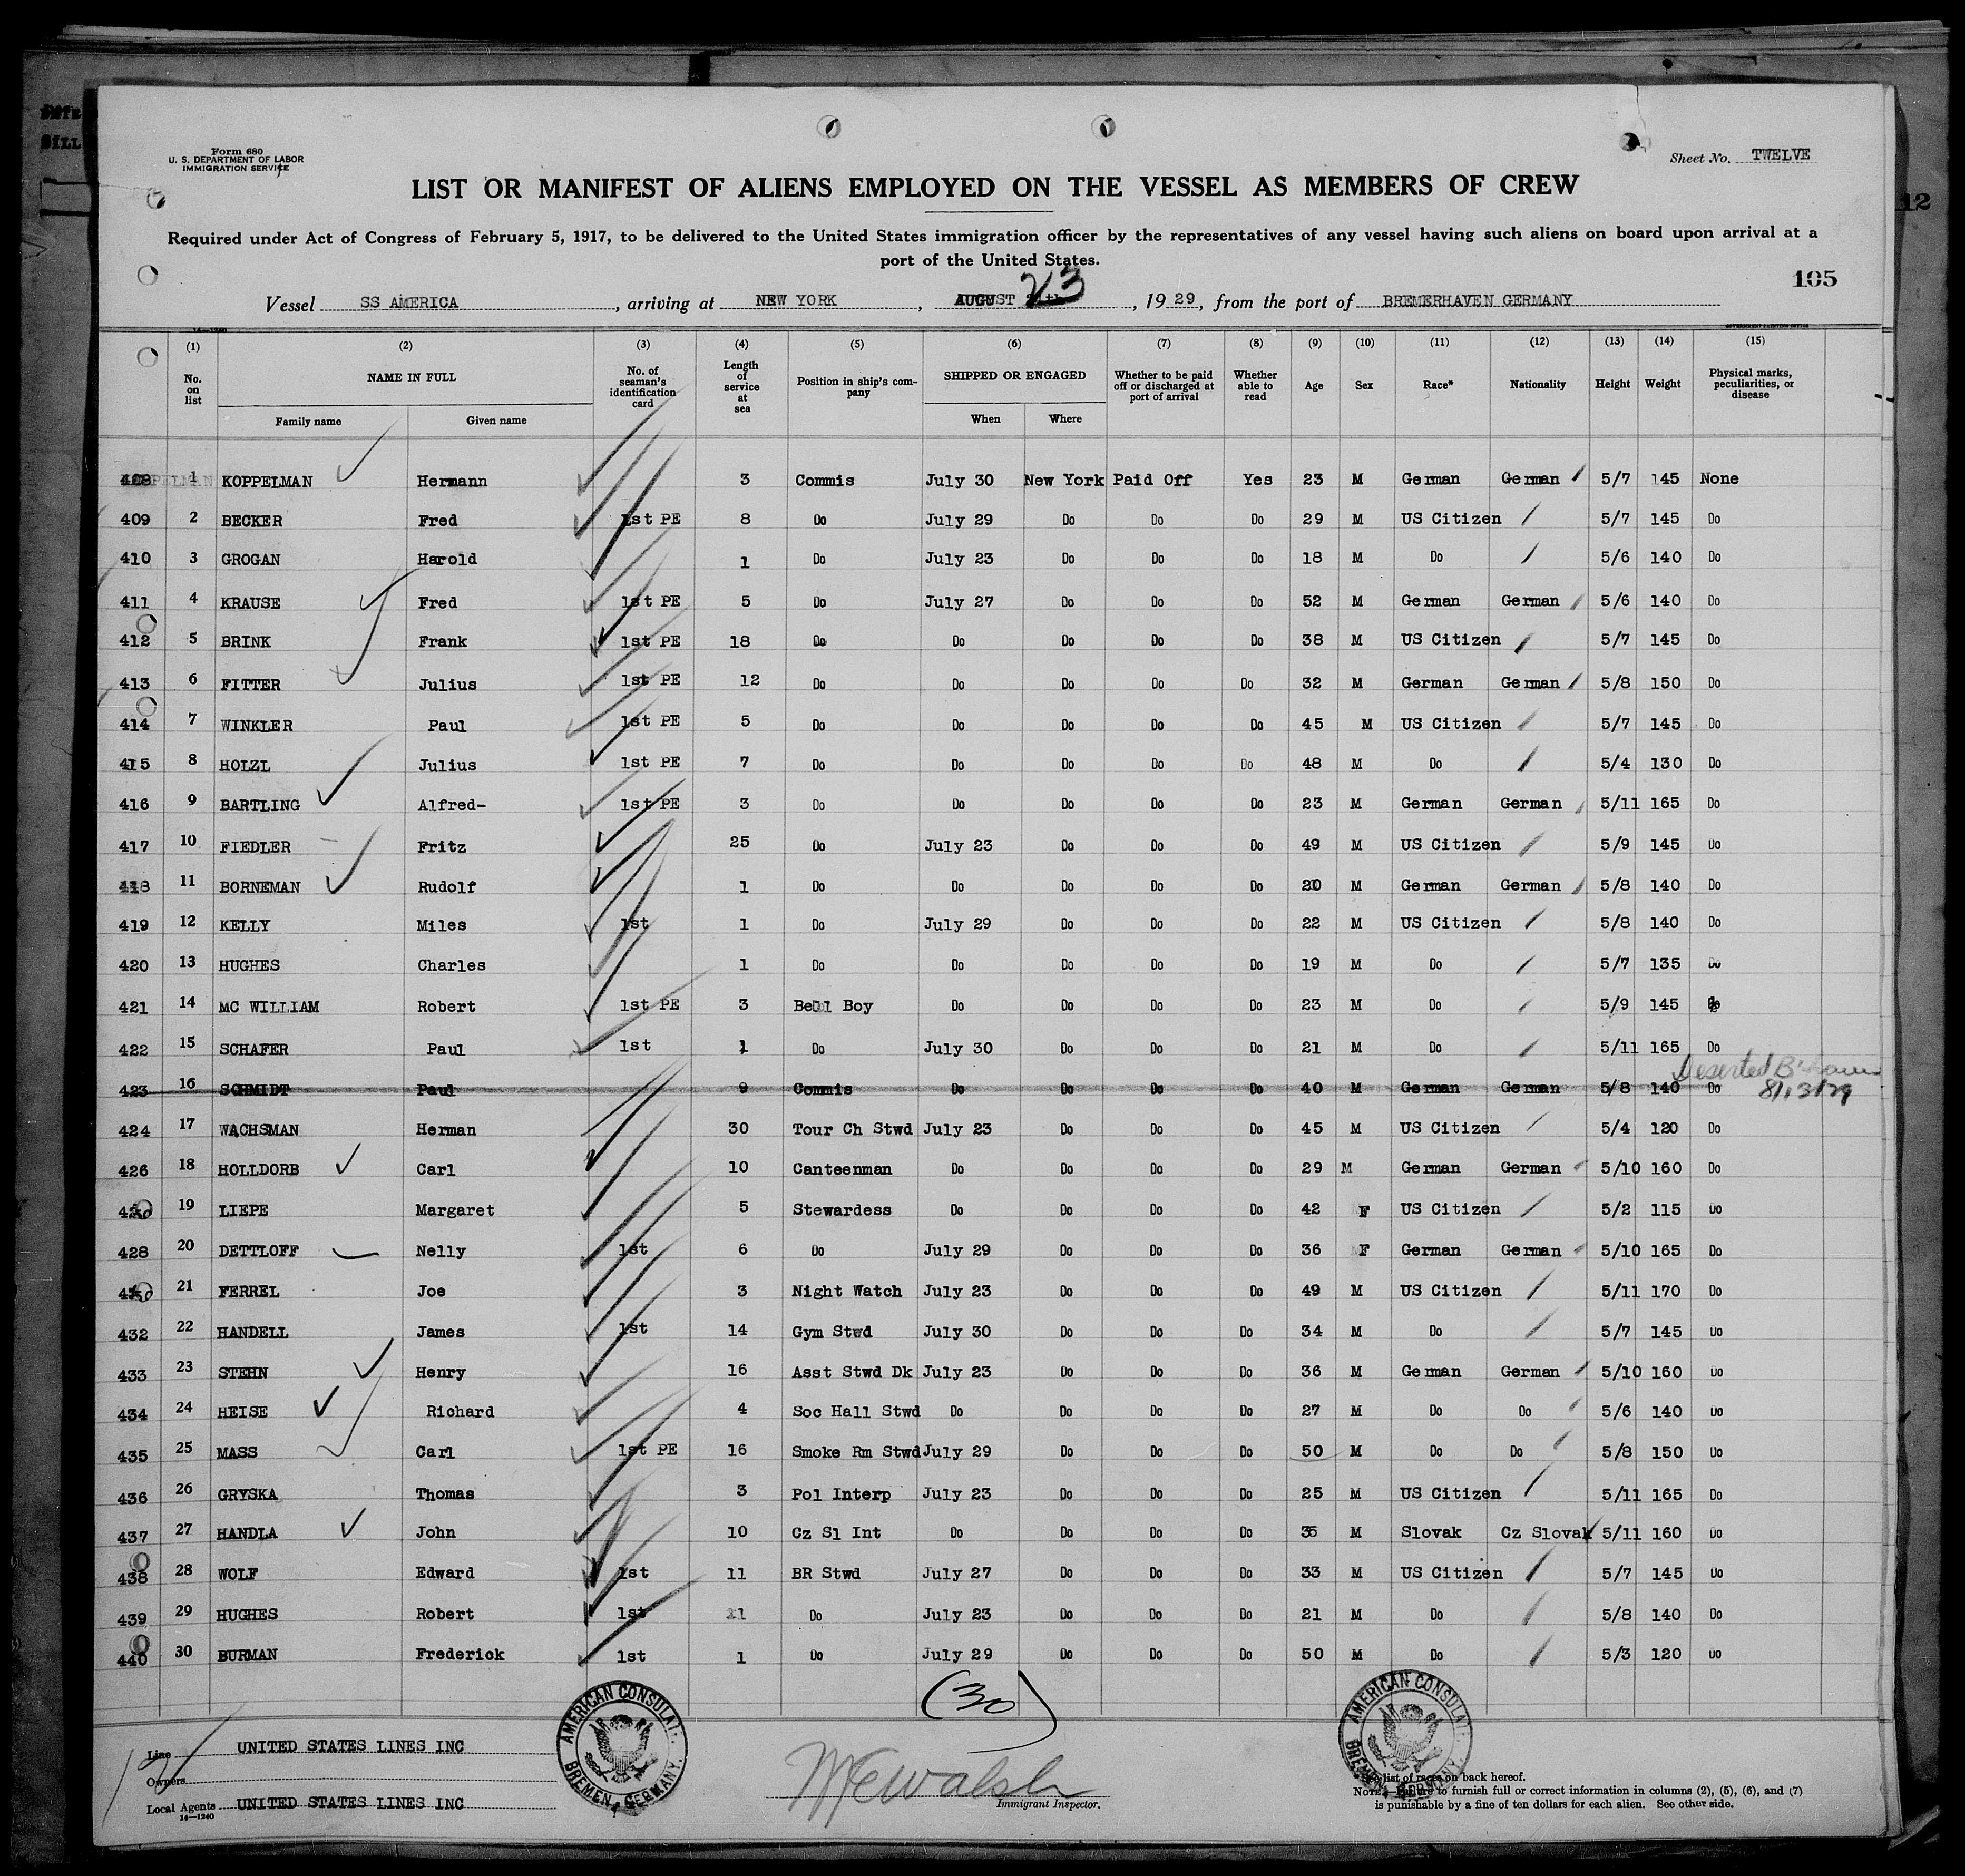 Form 680
U. S. DEPARTMENT OF LABOR
IMMIGRATION SERVICE
Sheet No. TWELVE
LIST OR MANIFEST OF ALIENS EMPLOYED ON THE VESSEL AS MEMBERS OF CREW
12
Required under Act of Congress of February 5, 1917, to be delivered to the United States immigration officer by the representatives of any vessel having such aliens on board upon arrival at a
port of the United States.
105
Vessel SS AMERICA, arriving at NEW YORK, AUGUST 23, 1929, from the port of BREMERHAVEN GERMANY
14—1240
(1) (2) (3) (4) (5) (6) (7) (8) (9) (10) (11) (12) (13) (14) (15)
No. on list NAME IN FULL Family name Given name No. of seaman's identification card Length of service at sea Position in ship's company SHIPPED OR ENGAGED When Where Whether to be paid off or discharged at port of arrival Whether able to read Age Sex Race* Nationality Height Weight Physical marks, peculiarities, or disease
408 1 KOPPELMAN Hermann 3 Commis July 30 New York Paid Off Yes 23 M German German 5/7 145 None
409 2 BECKER Fred 1st PE 8 Do July 29 Do Do Do 29 M US Citizen 5/7 145 Do
410 3 GROGAN Harold 1 Do July 23 Do Do Do 18 M Do 5/6 140 Do
411 4 KRAUSE Fred 1st PE 5 Do July 27 Do Do Do 52 M German German 5/6 140 Do
412 5 BRINK Frank 1st PE 18 Do Do Do Do Do 38 M US Citizen 5/7 145 Do
413 6 FITTER Julius 1st PE 12 Do Do Do Do Do 32 M German German 5/8 150 Do
414 7 WINKLER Paul 1st PE 5 Do Do Do Do Do 45 M US Citizen 5/7 145 Do
415 8 HOLZL Julius 1st PE 7 Do Do Do Do Do 48 M Do 5/4 130 Do
416 9 BARTLING Alfred- 1st PE 3 Do Do Do Do Do 23 M German German 5/11 165 Do
417 10 FIEDLER Fritz 25 Do July 23 Do Do Do 49 M US Citizen 5/9 145 Do
418 11 BORNEMAN Rudolf 1 Do Do Do Do Do 20 M German German 5/8 140 Do
419 12 KELLY Miles 1st 1 Do July 29 Do Do Do 22 M US Citizen 5/8 140 Do
420 13 HUGHES Charles 1 Do Do Do Do Do 19 M Do 5/7 135 Do
421 14 MC WILLIAM Robert 1st PE 3 Bell Boy Do Do Do Do 23 M Do 5/9 145 Do
422 15 SCHAFER Paul 1st 1 Do July 30 Do Do Do 21 M Do 5/11 165 Do
423 16 SCHMIDT Paul 9 Commis Do Do Do Do 40 M German German 5/8 140 Do Deserted 8/13/29
424 17 WACHSMAN Herman 30 Tour Ch Stwd July 23 Do Do Do 45 M US Citizen 5/4 120 Do
426 18 HOLLDORB Carl 10 Canteenman Do Do Do Do 29 M German German 5/10 160 Do
19 LIEPE Margaret 5 Stewardess Do Do Do Do 42 F US Citizen 5/2 115 Do
428 20 DETTLOFF Nelly 1st 6 Do July 29 Do Do Do 36 F German German 5/10 165 Do
21 FERREL Joe 3 Night Watch July 23 Do Do Do 49 M US Citizen 5/11 170 Do
432 22 HANDELL James 1st 14 Gym Stwd July 30 Do Do Do 34 M Do 5/7 145 Do
433 23 STEHN Henry 16 Asst Stwd Dk July 23 Do Do Do 36 M German German 5/10 160 Do
434 24 HEISE Richard 4 Soc Hall Stwd Do Do Do Do 27 M Do Do 5/6 140 Do
435 25 MASS Carl 1st PE 16 Smoke Rm Stwd July 29 Do Do Do 50 M Do Do 5/8 150 Do
436 26 GRYSKA Thomas 3 Pol Interp July 23 Do Do Do 25 M US Citizen 5/11 165 Do
437 27 HANDLA John 10 Cz Sl Int Do Do Do Do 36 M Slovak Cz Slovak 5/11 160 Do
438 28 WOLF Edward 1st 11 BR Stwd July 27 Do Do Do 33 M US Citizen 5/7 145 Do
439 29 HUGHES Robert 1st 1 Do July 23 Do Do Do 21 M Do 5/8 140 Do
440 30 BURMAN Frederick 1st 1 Do July 29 Do Do Do 50 M Do 5/3 120 Do
(30)
AMERICAN CONSULAT
BREMEN, GERMANY.
AMERICAN CONSULAT
BREMEN, GERMANY.
Line UNITED STATES LINES INC
Owners
Local Agents UNITED STATES LINES INC
14—1240
Immigrant Inspector.
See list of races on back hereof.
NOTE.—Failure to furnish full or correct information in columns (2), (5), (6), and (7)
is punishable by a fine of ten dollars for each alien. See other side.